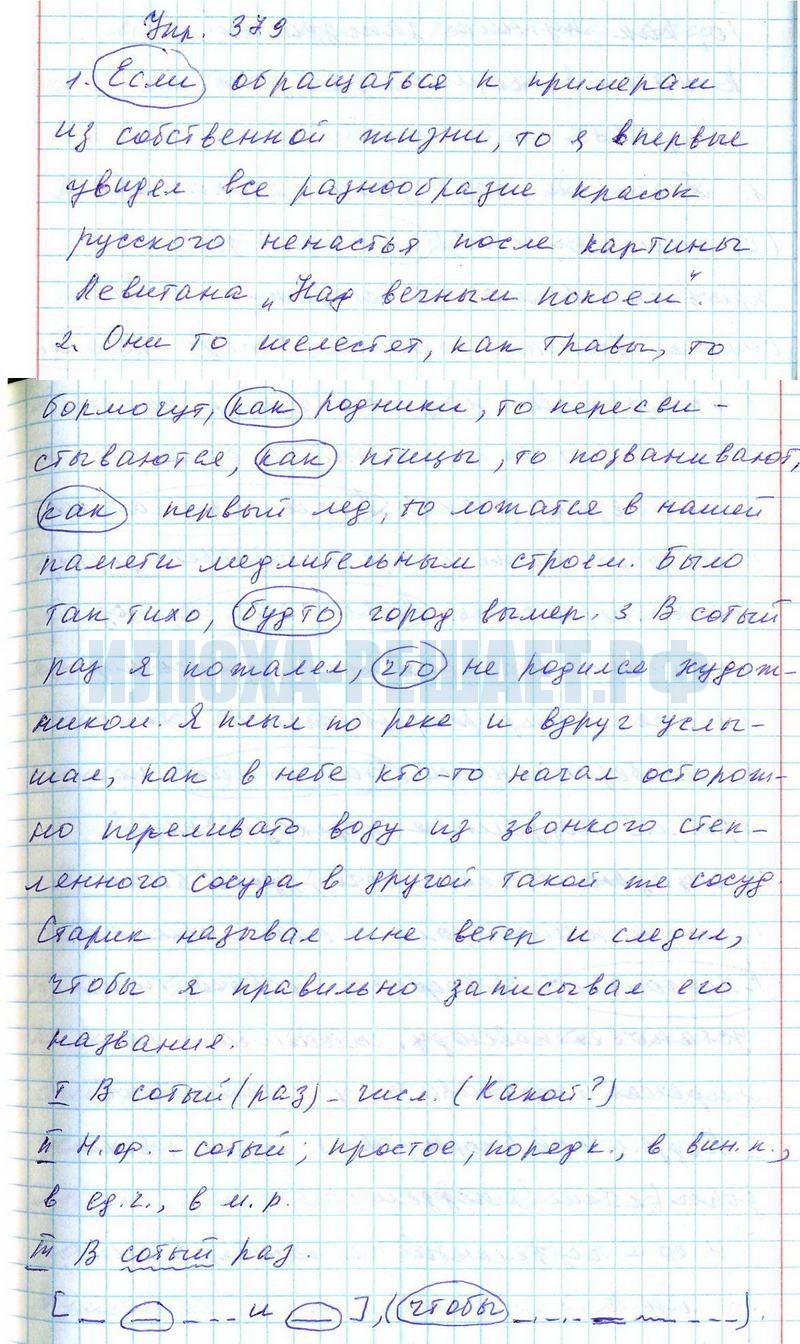 Упр. 379
1. Если обращаться к примерам
из собственной жизни, то я впервые
увидел все разнообразие красок
русского ненастья после картины
Левитана „Над вечным покоем".
2. Они то шелестят, как травы, то
бормочут, как родники, то пересви-
стываются, как птицы, то позванивают,
как первый лед, то ложатся в нашей
памяти медлительным строем. Было
так тихо, будто город вымер. 3. В сотый
раз я пожалел, что не родился худож-
ником. Я плыл по реке и вдруг услы-
шал, как в небе кто-то начал осторож-
но переливать воду из звонкого стек-
лянного сосуда в другой такой же сосуд.
Старик называл мне ветер и следил,
чтобы я правильно записывал его
названия.
I В сотый (раз) – числ. (Какой?)
II Н.ф. – сотый; простое, порядк., в вин. п.,
в ед.ч., в м.р.
III В сотый раз.
[ и ], (чтобы ).
ИЛЮХА-РЕШАЕТ.РФ